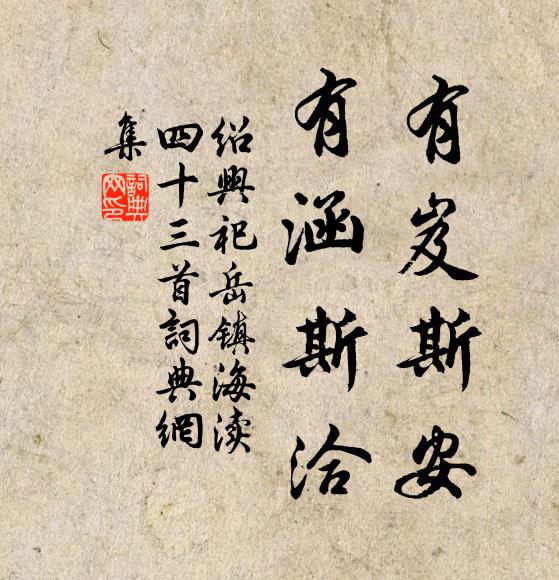 有岌斯安
有涵斯洽
绍興祀岳镇海渎
四十三首詞典網
集
詞典網印